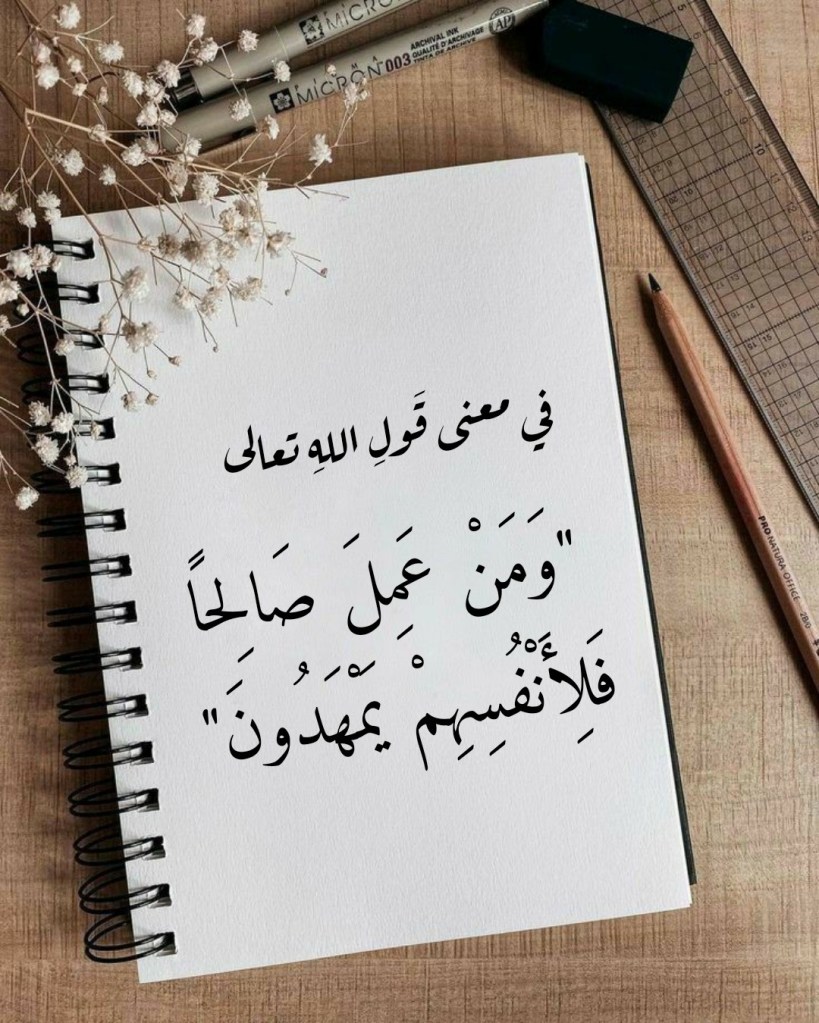 MICRON
MICRON 003 ARCHIVAL INK
QUALITÉ D'ARCHIVAGE
TINTA DE ARCHIVE
AP
في معنى قَولِ اللهِ تعالى
"وَمَنْ عَمِلَ صَالِحاً
فَلِأَنْفُسِهِمْ يَمْهَدُونَ"
PRO NATURA-OFFICE 2B/0